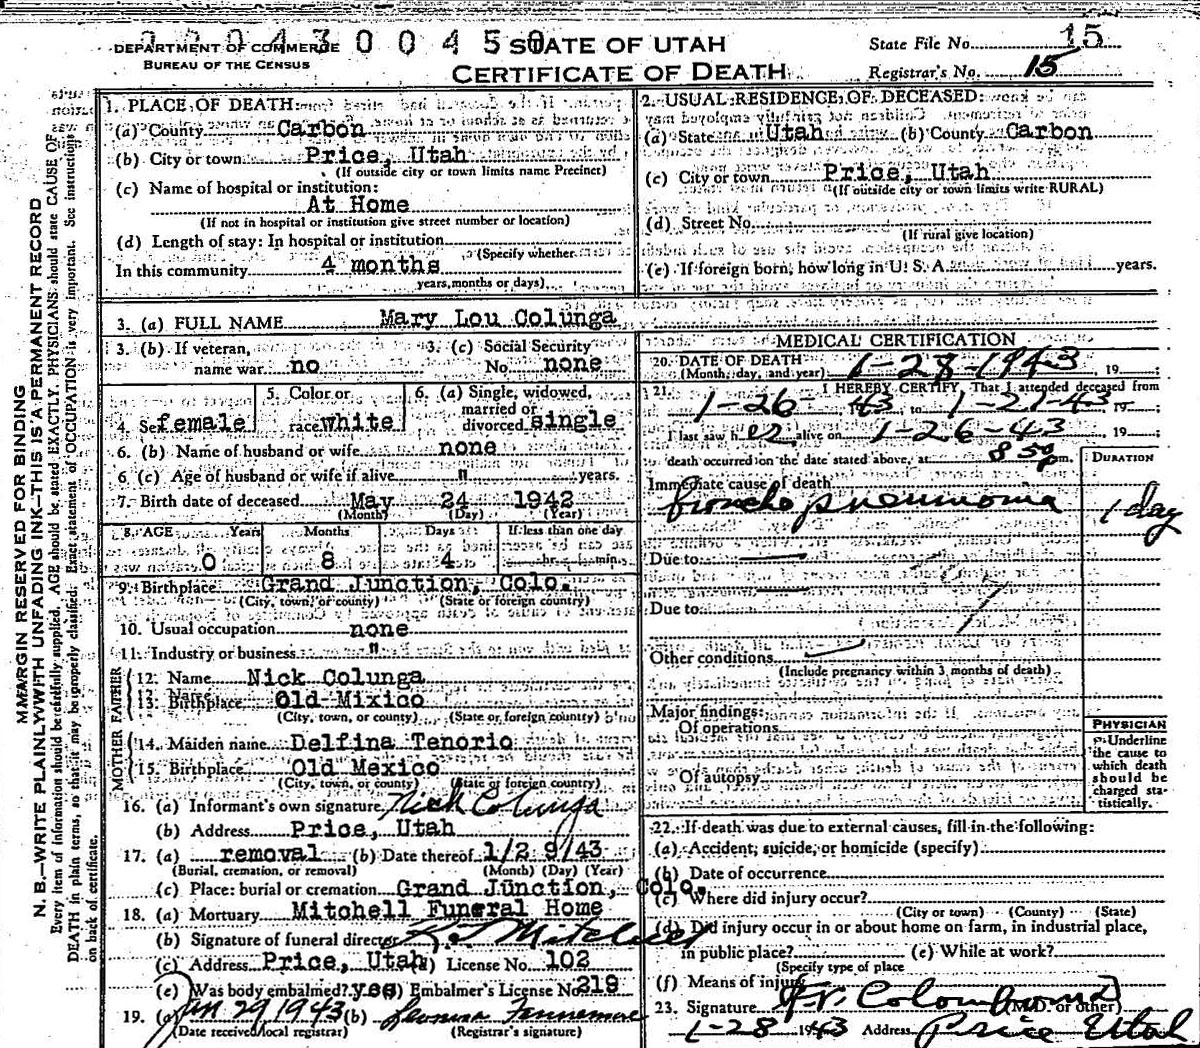 DEPARTMENT OF COMMERCE
BUREAU OF THE CENSUS
STATE OF UTAH
CERTIFICATE OF DEATH
State File No. 15
Registrar's No. 15
MARGIN RESERVED FOR BINDING
N. B.—WRITE PLAINLY WITH UNFADING INK—THIS IS A PERMANENT RECORD
Every item of information should be carefully supplied. AGE should be stated EXACTLY. PHYSICIANS should state CAUSE OF
DEATH in plain terms, so that it may be properly classified. Exact statement of OCCUPATION is very important. See instructions
on back of certificate.
1. PLACE OF DEATH:
(a) County Carbon
(b) City or town Price, Utah
(If outside city or town limits name Precinct)
(c) Name of hospital or institution:
At Home
(If not in hospital or institution give street number or location)
(d) Length of stay: In hospital or institution
(Specify whether
In this community 4 months
years, months or days)
2. USUAL RESIDENCE OF DECEASED:
(a) State Utah (b) County Carbon
(c) City or town Price, Utah
(If outside city or town limits write RURAL)
(d) Street No.
(If rural give location)
(e) If foreign born, how long in U. S. A. years.
3. (a) FULL NAME Mary Lou Colunga
3. (b) If veteran, name war no
3. (c) Social Security No. none
4. Sex female
5. Color or race white
6. (a) Single, widowed, married or divorced single
6. (b) Name of husband or wife none
6. (c) Age of husband or wife if alive " years.
7. Birth date of deceased May 24 1942
(Month) (Day) (Year)
8. AGE Years Months Days If less than one day
0 8 4 hr. min.
9. Birthplace Grand Junction, Colo.
(City, town, or county) (State or foreign country)
10. Usual occupation none
11. Industry or business "
FATHER
12. Name Nick Colunga
13. Birthplace Old Mixico
(City, town, or county) (State or foreign country)
MOTHER
14. Maiden name Delfina Tenorio
15. Birthplace Old Mexico
(City, town, or county) (State or foreign country)
16. (a) Informant's own signature Nick Colunga
(b) Address Price, Utah
17. (a) removal (b) Date thereof 1/29/43
(Burial, cremation, or removal) (Month) (Day) (Year)
(c) Place: burial or cremation Grand Junction, Colo.
18. (a) Mortuary Mitchell Funeral Home
(b) Signature of funeral director Mitchell
(c) Address Price, Utah License No. 102
(e) Was body embalmed? yes Embalmer's License No. 219
19. (a) Jan 29 1943 (b)
(Date received local registrar) (Registrar's signature)
MEDICAL CERTIFICATION
20. DATE OF DEATH 1-28-1943, 19
(Month, day, and year)
21. I HEREBY CERTIFY, That I attended deceased from
1-26- 43 to 1-27-43 19
I last saw her alive on 1-26-43, 19
death occurred on the date stated above, at 8 50 pm.
DURATION
Immediate cause of death
Broncho pneumonia 1 day
Due to
Due to
Other conditions
(Include pregnancy within 3 months of death)
Major findings:
Of operations
Of autopsy
PHYSICIAN
Underline
the cause to
which death
should be
charged sta-
tistically.
22. If death was due to external causes, fill in the following:
(a) Accident, suicide, or homicide (specify)
(b) Date of occurrence
(c) Where did injury occur?
(City or town) (County) (State)
(d) Did injury occur in or about home on farm, in industrial place,
in public place? (e) While at work?
(Specify type of place
(f) Means of injury
23. Signature Colombo MD (M.D. or other)
1-28 1943 Address Price Utah